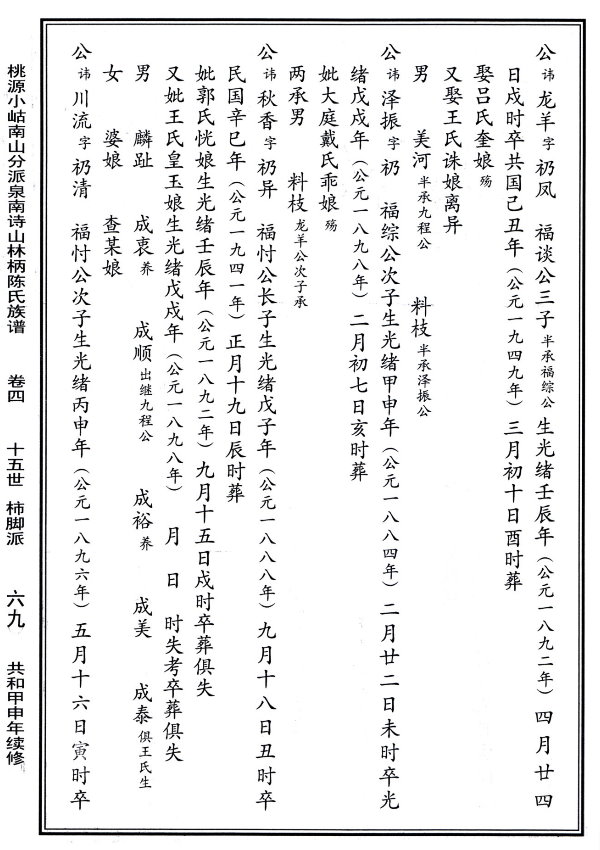 公讳龙羊字礽凤　福谈公三子半承福综公生光绪壬辰年（公元一八九二年）四月廿四
日戌时卒共国己丑年（公元一九四九年）三月初十日酉时葬
娶吕氏奎娘殇
又娶王氏诛娘离异
男　美河半承九程公　料枝半承泽振公
公讳泽振字礽　福综公次子生光绪甲申年（公元一八八四年）二月廿二日未时卒光
绪戊戌年（公元一八九八年）二月初七日亥时葬
妣大庭戴氏乖娘殇
两承男　料枝龙羊公次子承
公讳秋香字礽异　福忖公长子生光绪戊子年（公元一八八八年）九月十八日丑时卒
民国辛巳年（公元一九四一年）正月十九日辰时葬
妣郭氏恍娘生光绪壬辰年（公元一八九二年）九月十五日戌时卒葬俱失
又妣王氏皇玉娘生光绪戊戌年（公元一八九八年）　月　日　时失考卒葬俱失
男　麟趾　成衷养　成顺出继九程公　成裕养　成美　成泰俱王氏生
女　婆娘　查某娘
公讳川流字礽清　福忖公次子生光绪丙申年（公元一八九六年）五月十六日寅时卒
桃源小岵南山分派泉南诗山林柄陈氏族谱　卷四　十五世　柿脚派　六九　共和甲申年续修